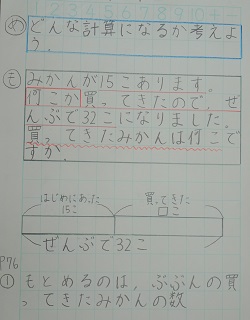 め どんな計算になるか考えよ
う。
も みかんが15こあります。
何こか買ってきたので、ぜ
んぶで32こになりました。
買ってきたみかんは何こで
すか。
はじめにあった 買ってきた
15こ □こ
ぜんぶで32こ
P76
① もとめるのは、ぶぶんの買
ってきたみかんの数